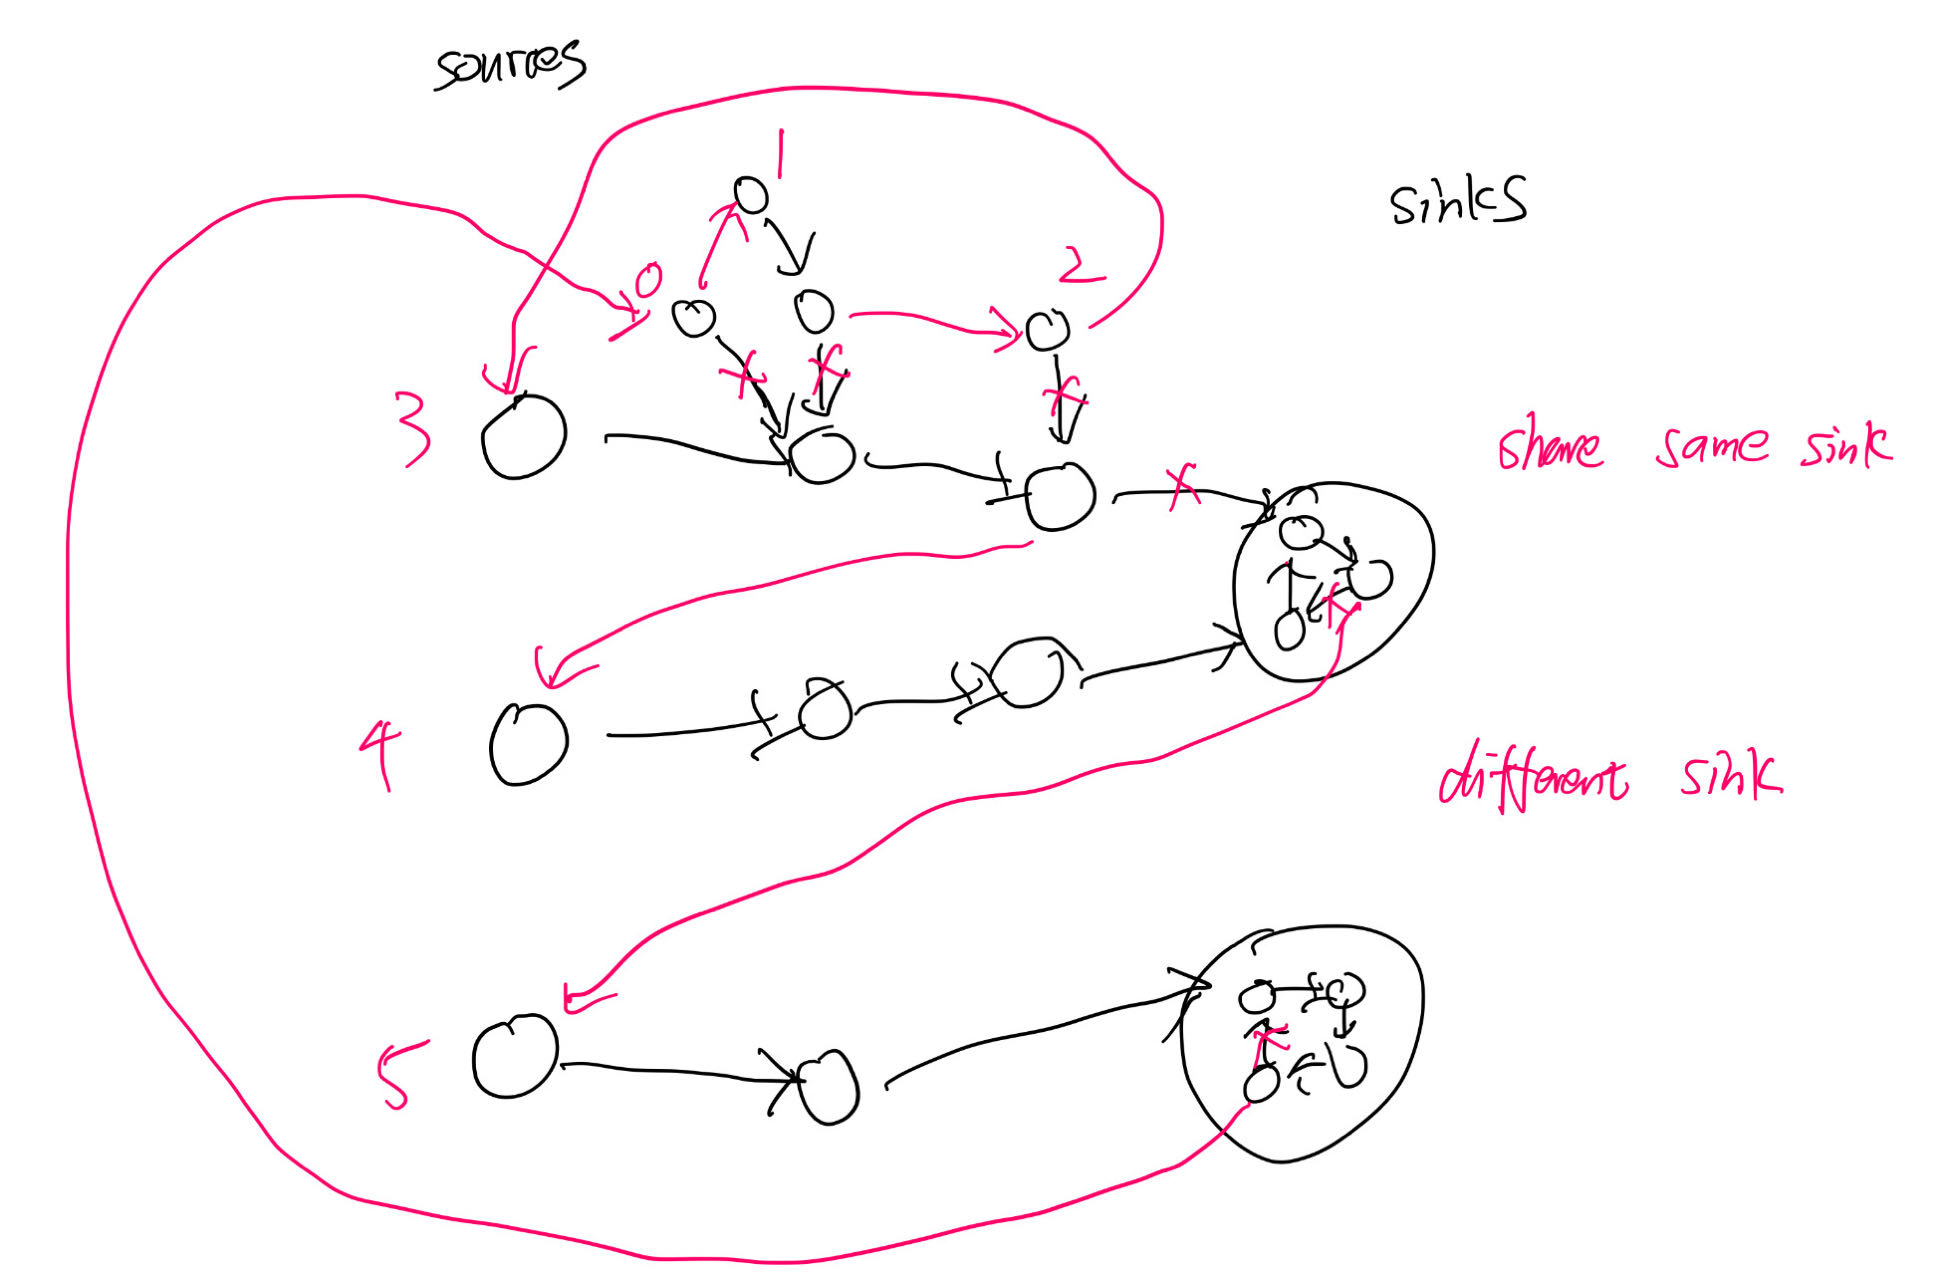 sources
1
sinks
0
2
3
share same sink
4
different sink
5